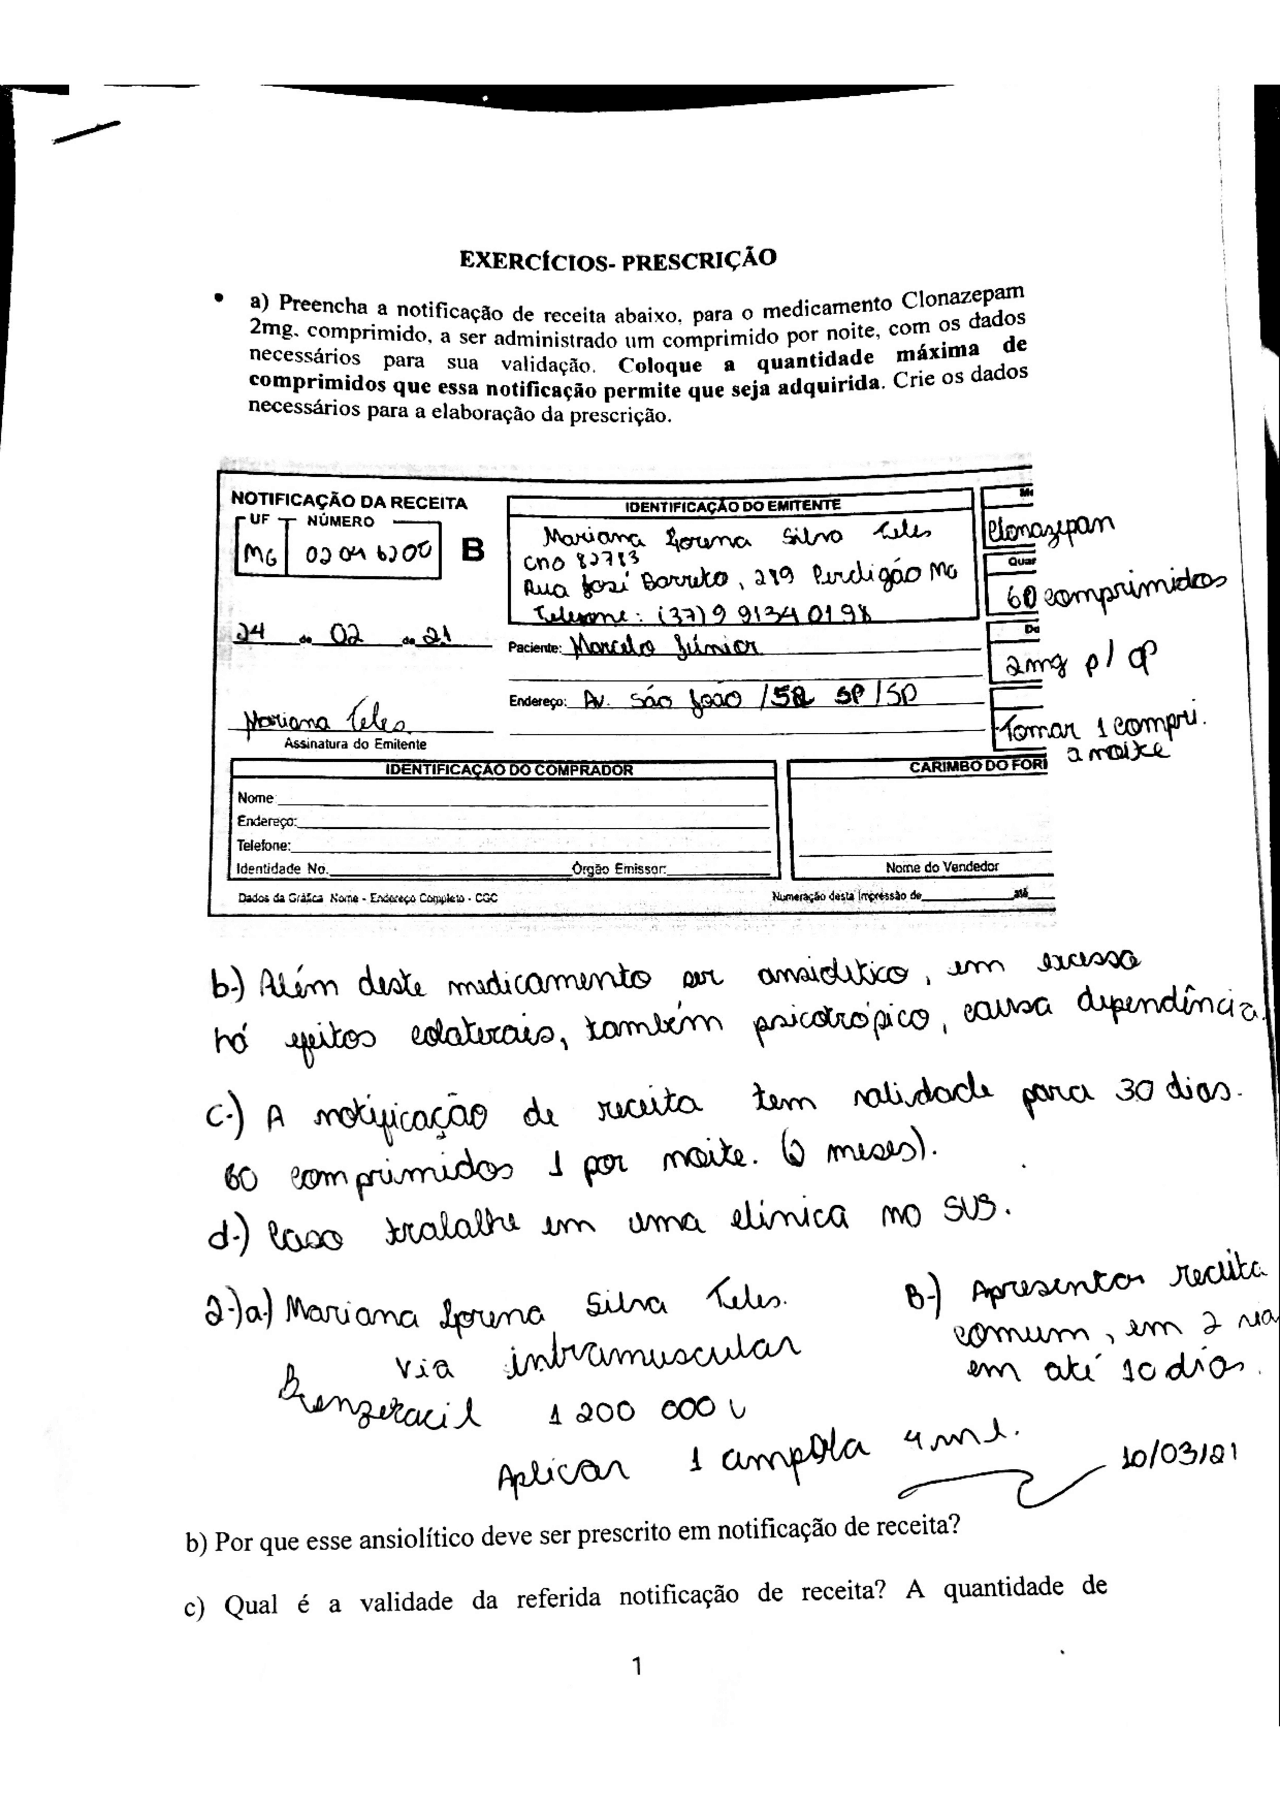 EXERCÍCIOS- PRESCRIÇÃO
• a) Preencha a notificação de receita abaixo, para o medicamento Clonazepam
2mg, comprimido, a ser administrado um comprimido por noite, com os dados
necessários para sua validação. Coloque a quantidade máxima de
comprimidos que essa notificação permite que seja adquirida. Crie os dados
necessários para a elaboração da prescrição.
NOTIFICAÇÃO DA RECEITA
UF NÚMERO
MG B
24 de 02 de 21
Mariana Teles
Assinatura do Emitente
IDENTIFICAÇÃO DO EMITENTE
Mariana Lorena Silva Teles
CRO 82783
Rua José Barreto, 289 Perdigão MG
Telefone: (37) 9 9134 0198
Paciente: Marcelo Júnior
Endereço: Av. São João / SP/SP
Clonazepan
Quan
60 comprimidos
2mg p/ cp
Tomar 1 compri.
a noite
IDENTIFICAÇÃO DO COMPRADOR
Nome
Endereço:
Telefone:
Identidade No. Órgão Emissor:
CARIMBO DO FOR
Nome do Vendedor
Dados da Gráfica Nome - Endereço Completo - CGC
Numeração desta Impressão de até
b-) Além deste medicamento ser ansiolitico, em excesso
há efeitos colaterais, também psicotrópico, causa dependência.
c-) A notificação de receita tem validade para 30 dias.
60 comprimidos 1 por noite. (2 meses).
d-) Caso trabalhe em uma clinica no SUS.
2-)a-) Mariana Lorena Silva Teles.
via intramuscular
Benzetacil 1 200 000 U
Aplicar 1 ampola 4 ml.
B-) Apresentar receita
comum, em 2 via
em até 10 dias.
10/03/21
b) Por que esse ansiolítico deve ser prescrito em notificação de receita?
c) Qual é a validade da referida notificação de receita? A quantidade de
1